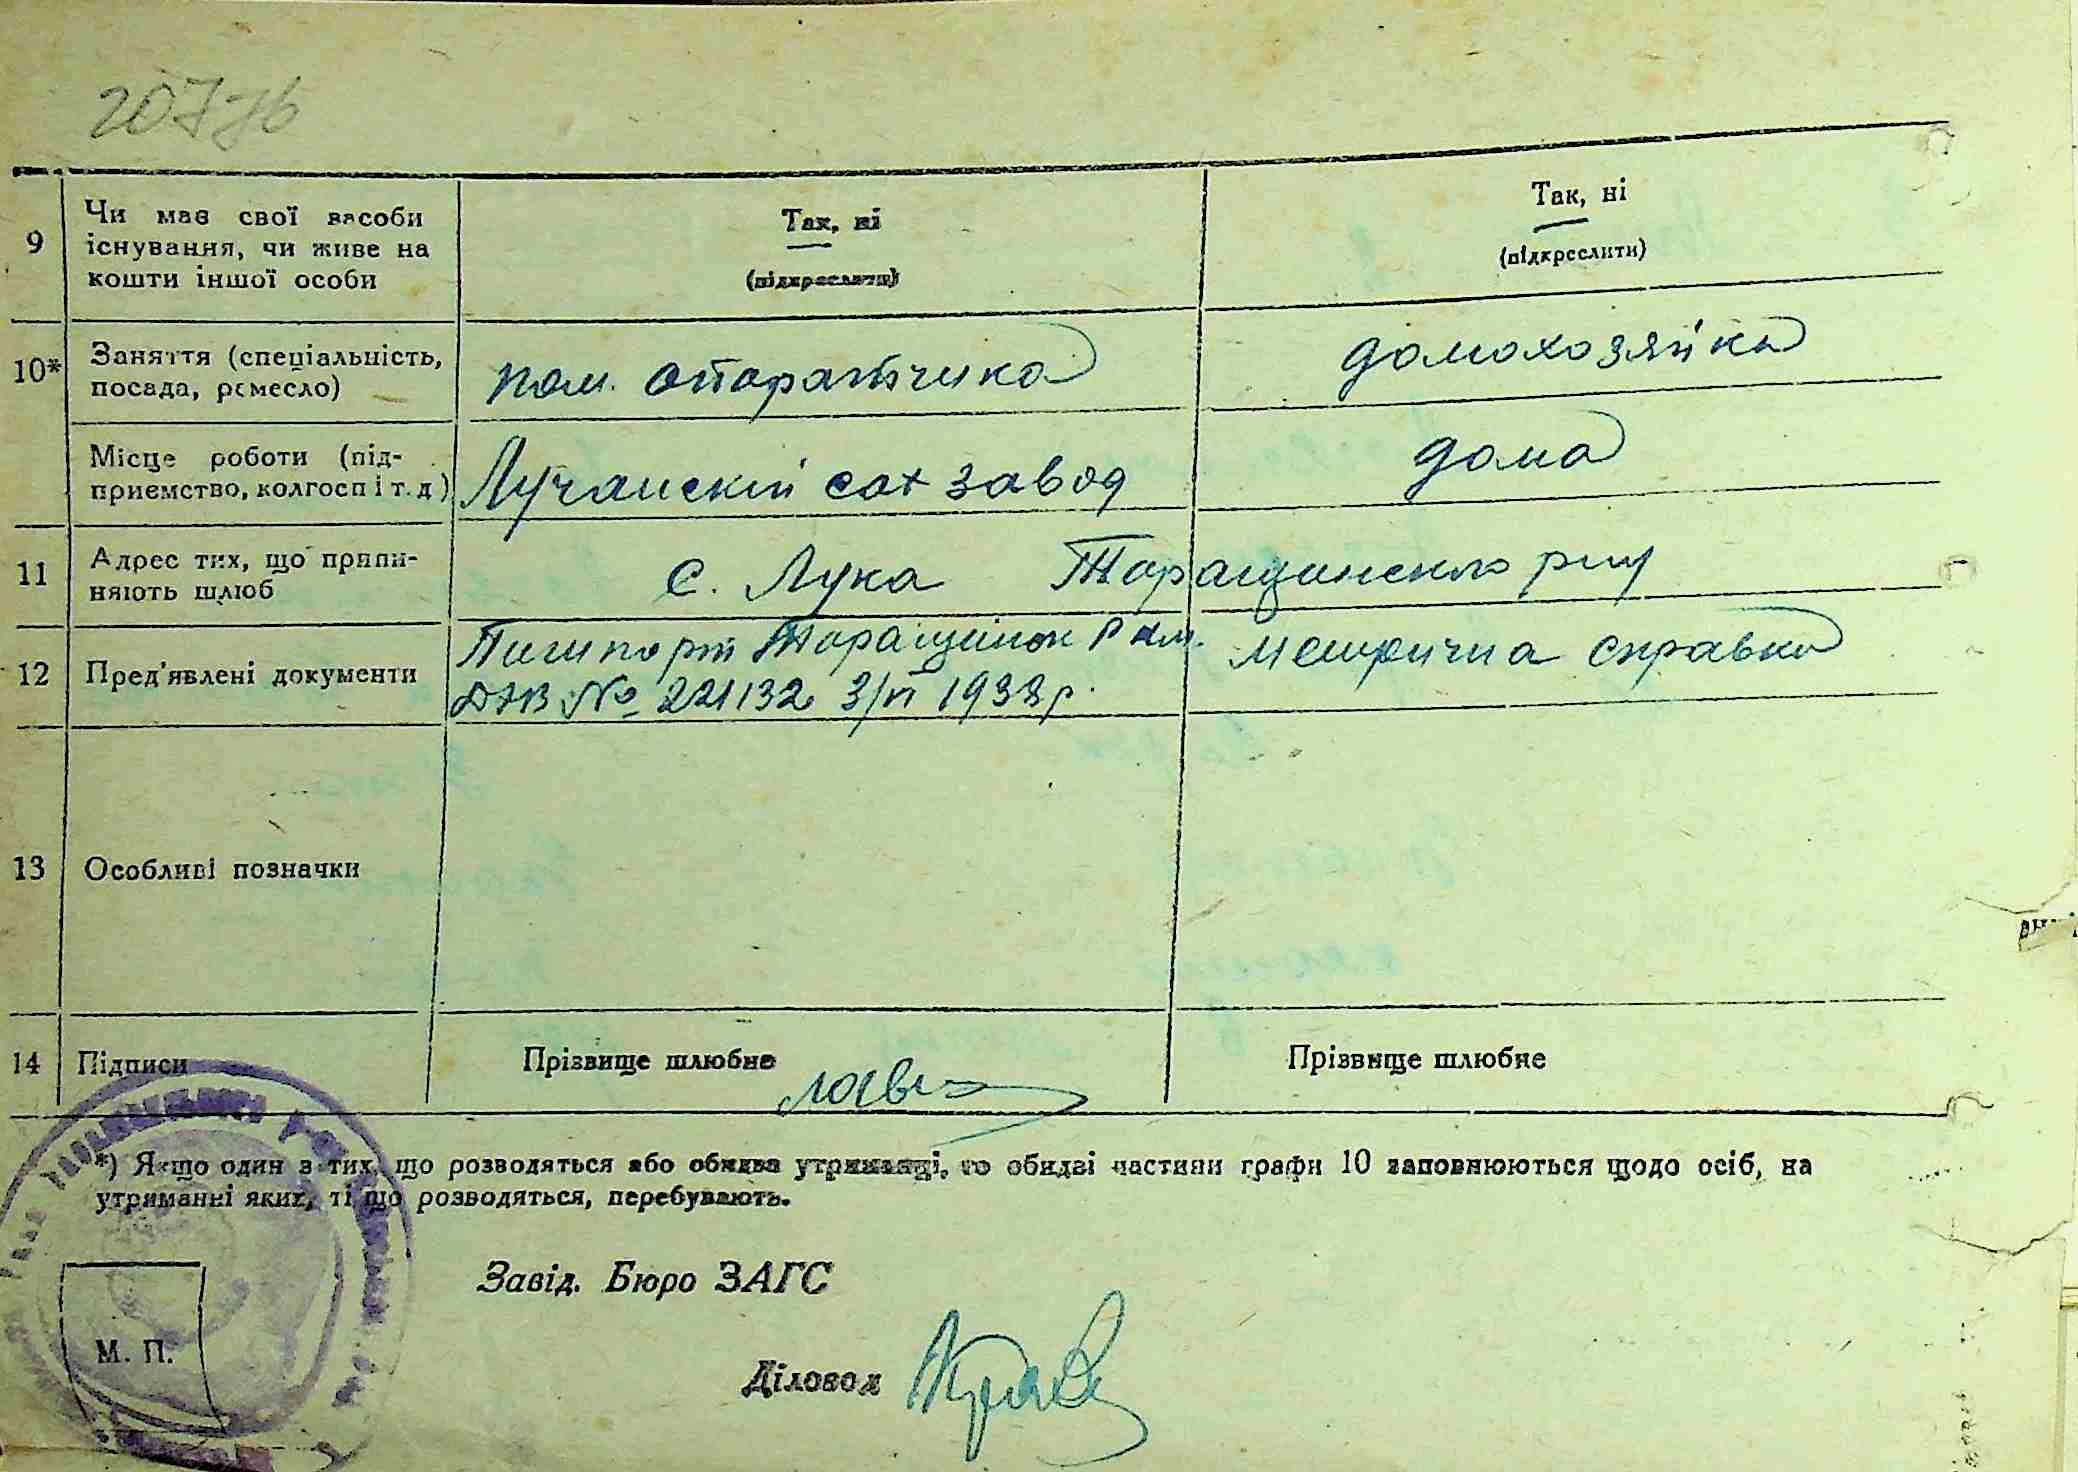 207 зв
9 Чи має свої засоби Так, ні Так, ні
існування, чи живе на (підкреслити) (підкреслити)
кошти іншої особи
10* Заняття (спеціальність, пом. опаратчика домохозяйка
посада, ремесло)
Місце роботи (під- Лучанскій сах завод дома
приємство, колгосп і т. д)
11 Адрес тих, що припи- с. Лука Таращанского р-ну
няють шлюб
12 Пред'явлені документи Пашпорт Таращанск Р К.М. метрична справка
№ 221132 3/VI 1933 р.
13 Особливі позначки
14 Підписи Прізвище шлюбне Прізвище шлюбне
*) Якщо один з тих, що розводяться або обидва утриманці, то обидві частини графи 10 заповнюються щодо осіб, на
утриманні яких, ті що розводяться, перебувають.
Завід. Бюро ЗАГС
М. П.
Діловод